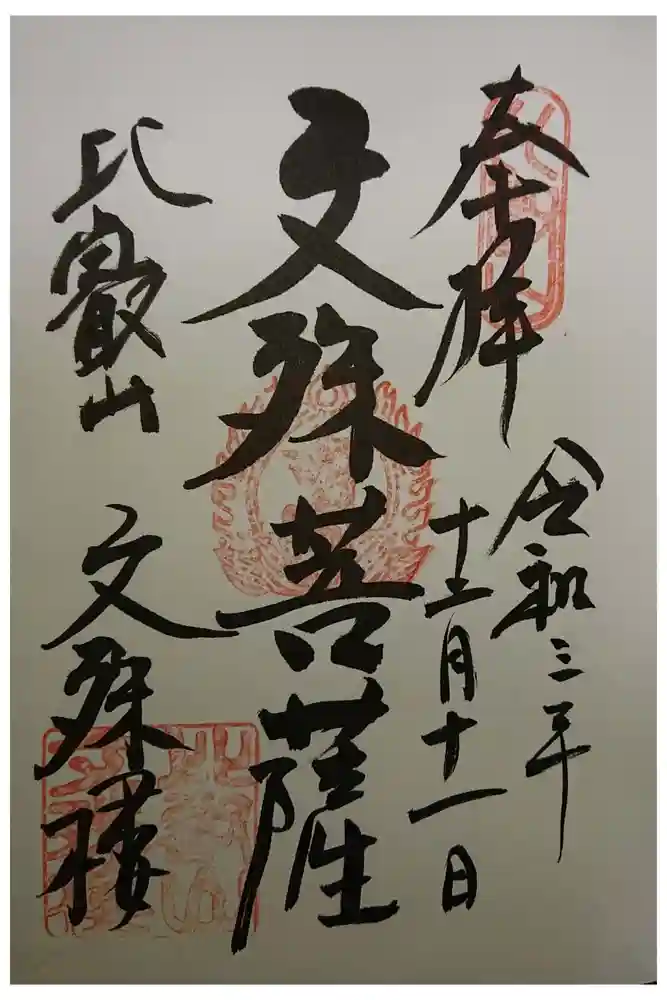 奉拝
令和三年
十二月十一日
文殊菩薩
比叡山
文殊楼